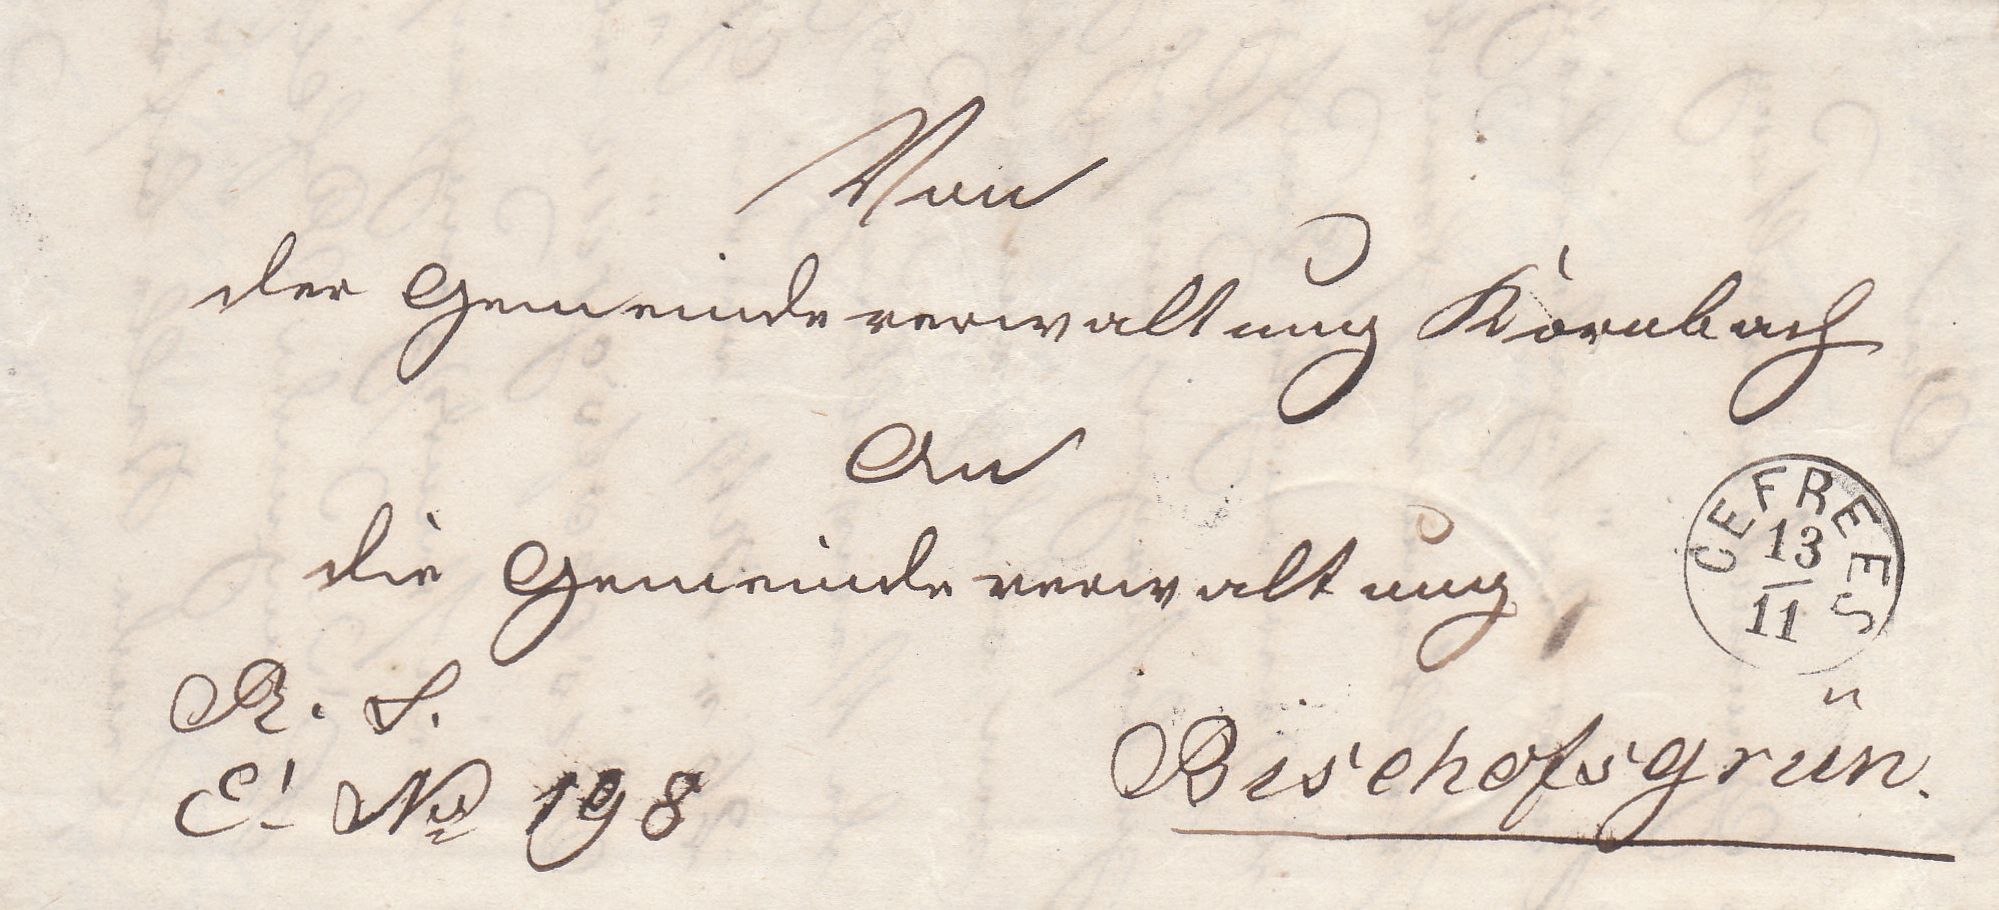 Von
der Gemeindeverwaltung Kornbach
An
die Gemeindeverwaltung
GEFREES
13
11
R. S.
E! No 198
Bischofsgrün.